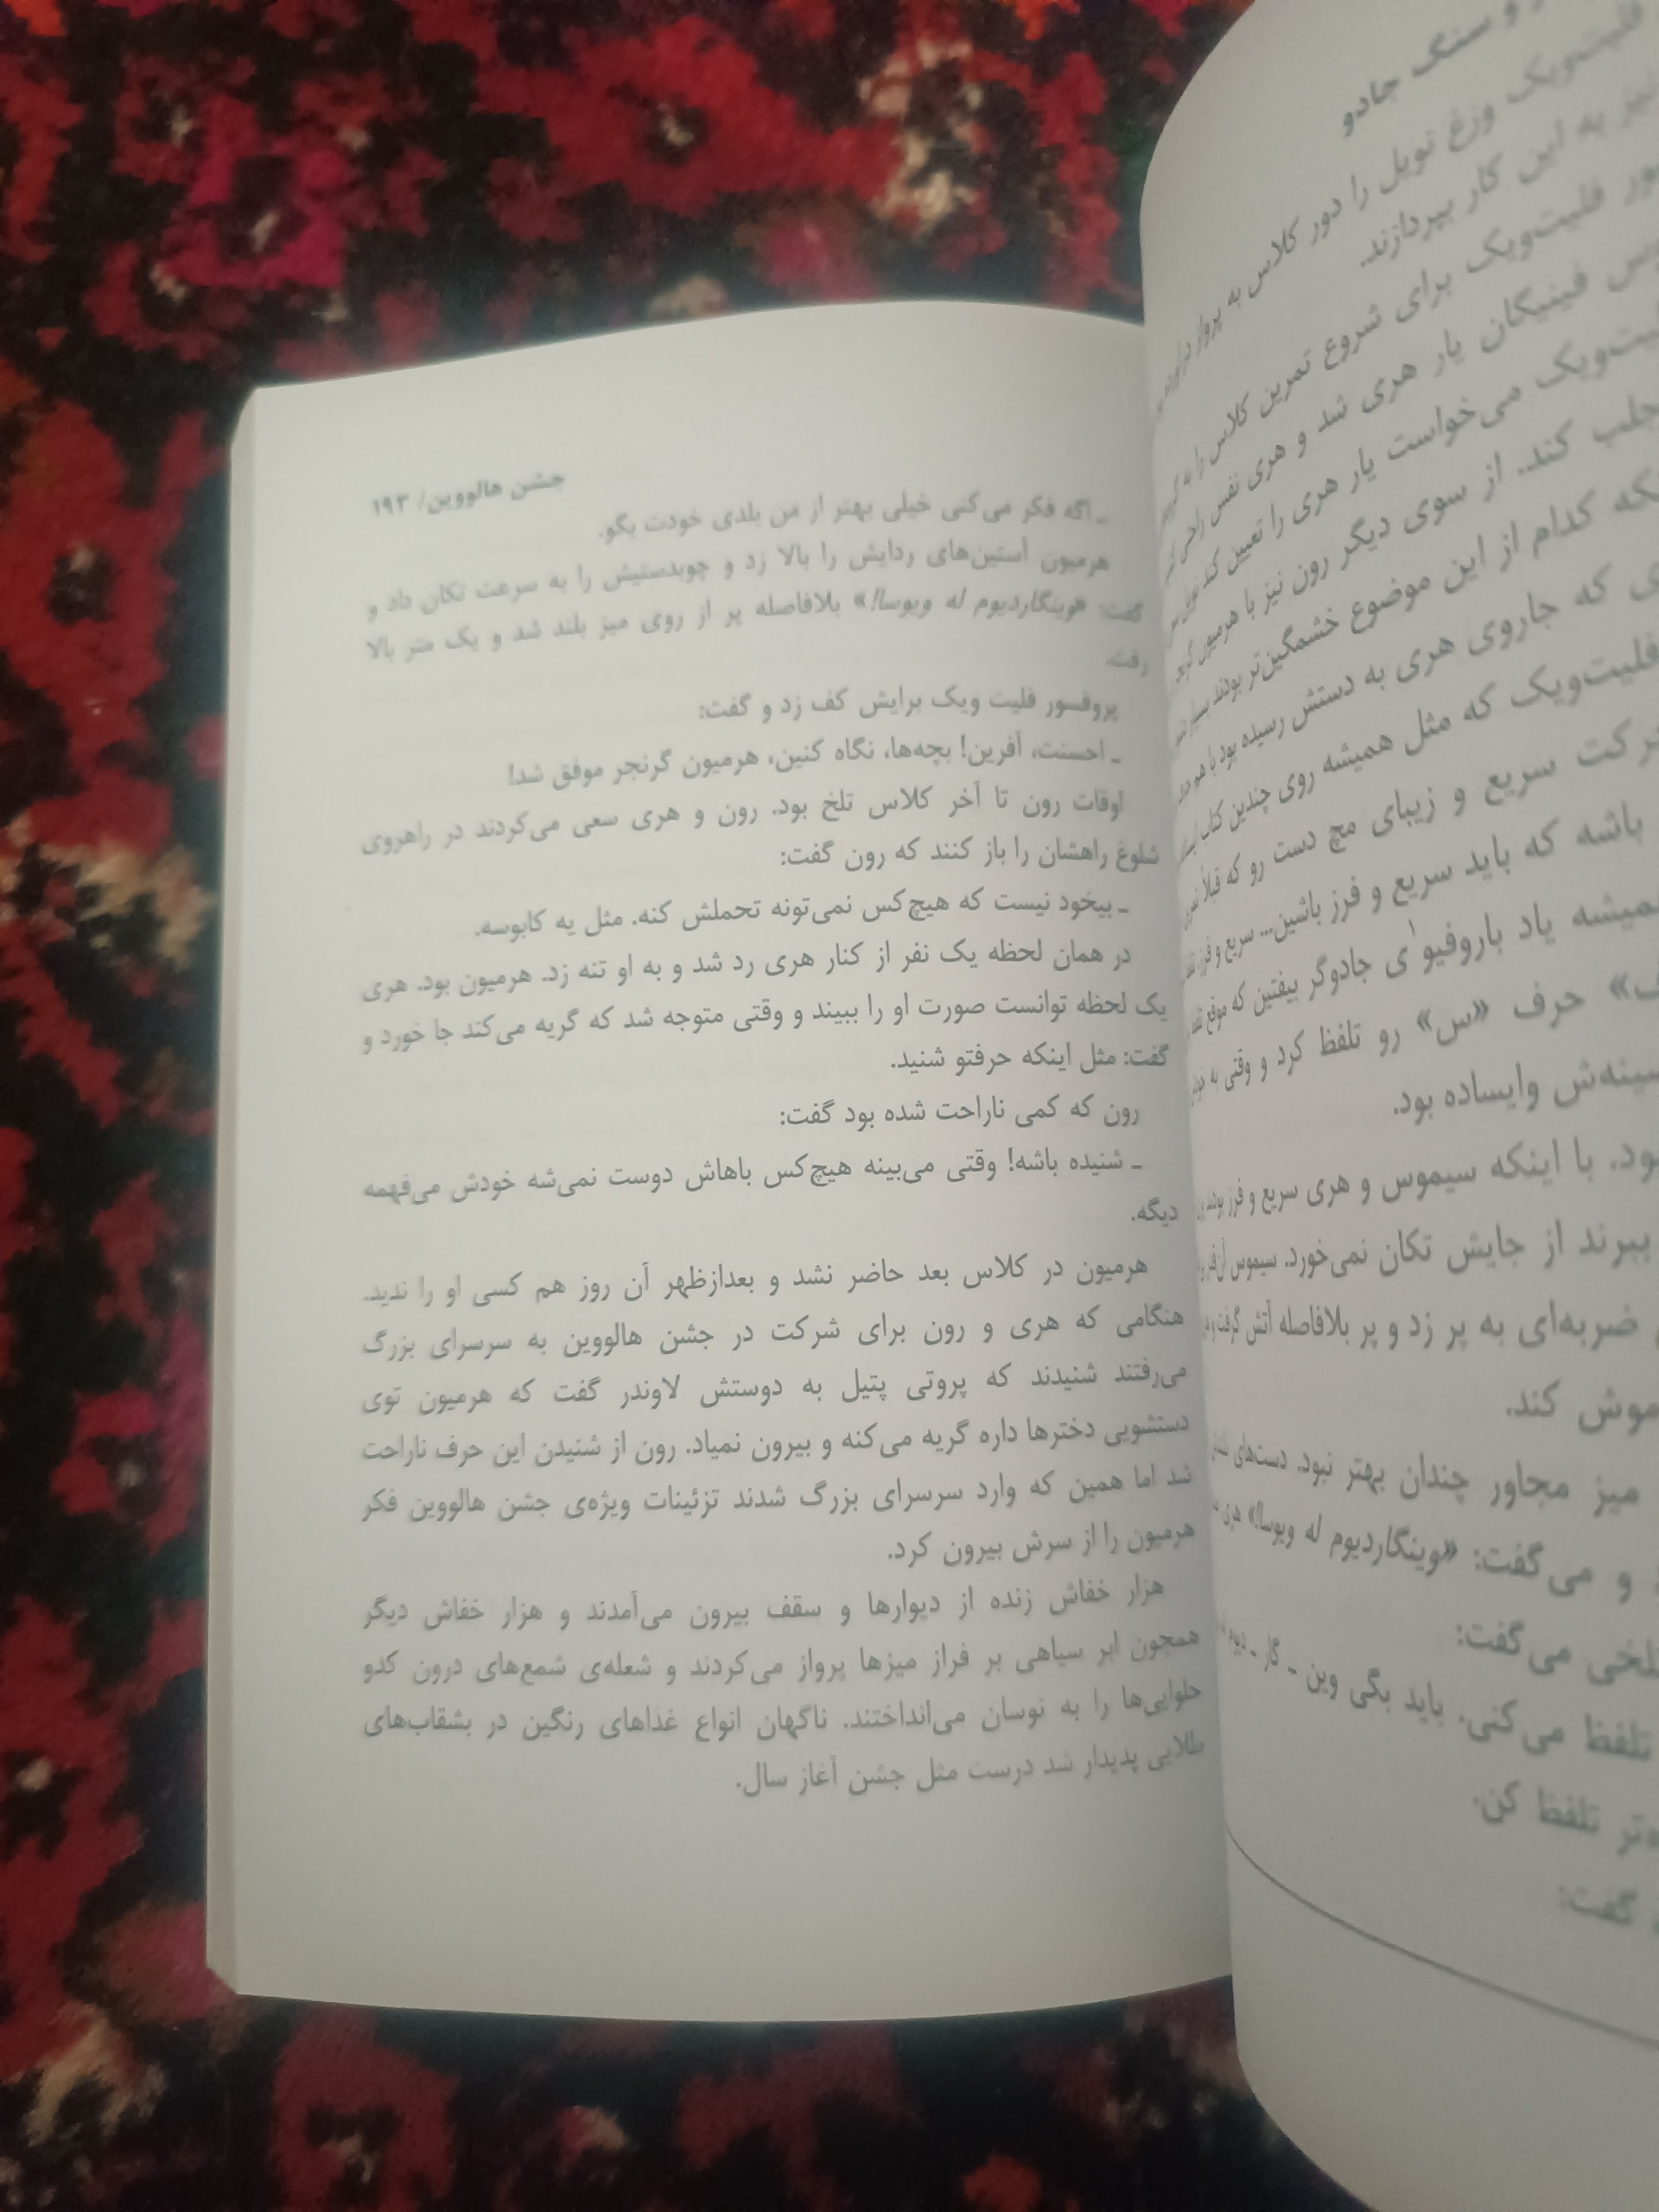 و سنگ جادو
فلیت‌ویک وزغ نویل را دور کلاس به پرواز
نیز به این کار بپردازند.
فلیت‌ویک برای شروع تمرین کلاس را به
فینیگان یار هری شد و هری نفس راحتی
می‌خواست یار هری را تعیین کند
جلب کند. از سوی دیگر رون نیز با هرمیون
کدام از این موضوع خشمگین‌تر بودند
که جاروی هری به دستش رسیده بود با هم
فلیت‌ویک که مثل همیشه روی چندین کتاب
حرکت سریع و زیبای مچ دست رو که قبلاً
باشه که باید سریع و فرز باشین... سریع و فرز
همیشه یاد باروفیو۱ی جادوگر بیفتین که موقع
حرف «س» رو تلفظ کرد و وقتی به
سینه‌ش وایساده بود.
بود. با اینکه سیموس و هری سریع و فرز بودند
ببرند از جایش تکان نمی‌خورد. سیموس
ضربه‌ای به پر زد و پر بلافاصله آتش گرفت
کند.
میز مجاور چندان بهتر نبود. دست‌های
و می‌گفت: «وینگاردیوم له ویوسا!» هری
می‌گفت:
تلفظ می‌کنی. باید بگی وین ـ گار ـ دیوم
تلفظ کن.
گفت:
جشن هالووین/ ۱۹۳
ـ اگه فکر می‌کنی خیلی بهتر از من بلدی خودت بگو.
هرمیون آستین‌های ردایش را بالا زد و چوبدستیش را به سرعت تکان داد و
گفت: «وینگاردیوم له ویوسا!» بلافاصله پر از روی میز بلند شد و یک متر بالا
رفت.
پروفسور فلیت ویک برایش کف زد و گفت:
ـ احسنت، آفرین! بچه‌ها، نگاه کنین، هرمیون گرنجر موفق شد!
اوقات رون تا آخر کلاس تلخ بود. رون و هری سعی می‌کردند در راهروی
شلوغ راهشان را باز کنند که رون گفت:
ـ بیخود نیست که هیچ‌کس نمی‌تونه تحملش کنه. مثل یه کابوسه.
در همان لحظه یک نفر از کنار هری رد شد و به او تنه زد. هرمیون بود. هری
یک لحظه توانست صورت او را ببیند و وقتی متوجه شد که گریه می‌کند جا خورد و
گفت: مثل اینکه حرفتو شنید.
رون که کمی ناراحت شده بود گفت:
ـ شنیده باشه! وقتی می‌بینه هیچ‌کس باهاش دوست نمی‌شه خودش می‌فهمه
دیگه.
هرمیون در کلاس بعد حاضر نشد و بعدازظهر آن روز هم کسی او را ندید.
هنگامی که هری و رون برای شرکت در جشن هالووین به سرسرای بزرگ
می‌رفتند شنیدند که پروتی پتیل به دوستش لاوندر گفت که هرمیون توی
دستشویی دخترها داره گریه می‌کنه و بیرون نمیاد. رون از شنیدن این حرف ناراحت
شد اما همین که وارد سرسرای بزرگ شدند تزئینات ویژه‌ی جشن هالووین فکر
هرمیون را از سرش بیرون کرد.
هزار خفاش زنده از دیوارها و سقف بیرون می‌آمدند و هزار خفاش دیگر
همچون ابر سیاهی بر فراز میزها پرواز می‌کردند و شعله‌ی شمع‌های درون کدو
حلوایی‌ها را به نوسان می‌انداختند. ناگهان انواع غذاهای رنگین در بشقاب‌های
طلایی پدیدار شد درست مثل جشن آغاز سال.